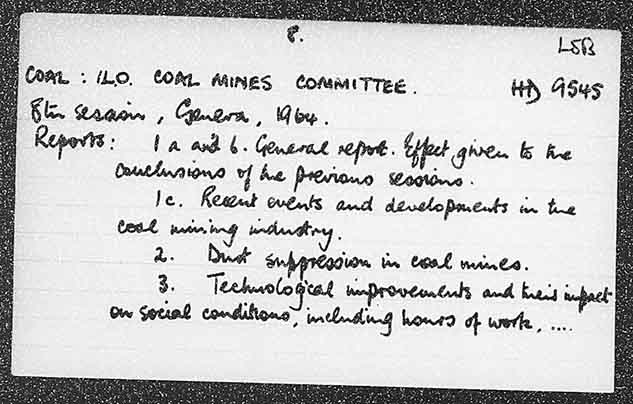 8.
LSB
COAL : I.L.O. COAL MINES COMMITTEE. HD 9545
8th session, Geneva, 1964.
Reports: 1 a and b. General report. Effect given to the
conclusions of the previous sessions.
1c. Recent events and developments in the
coal mining industry.
2. Dust suppression in coal mines.
3. Technological improvements and their impact
on social conditions, including hours of work, ....